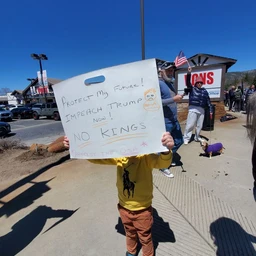 PROTECT MY FUTURE!
IMPEACH TRUMP
NOW!
NO KINGS
ONS